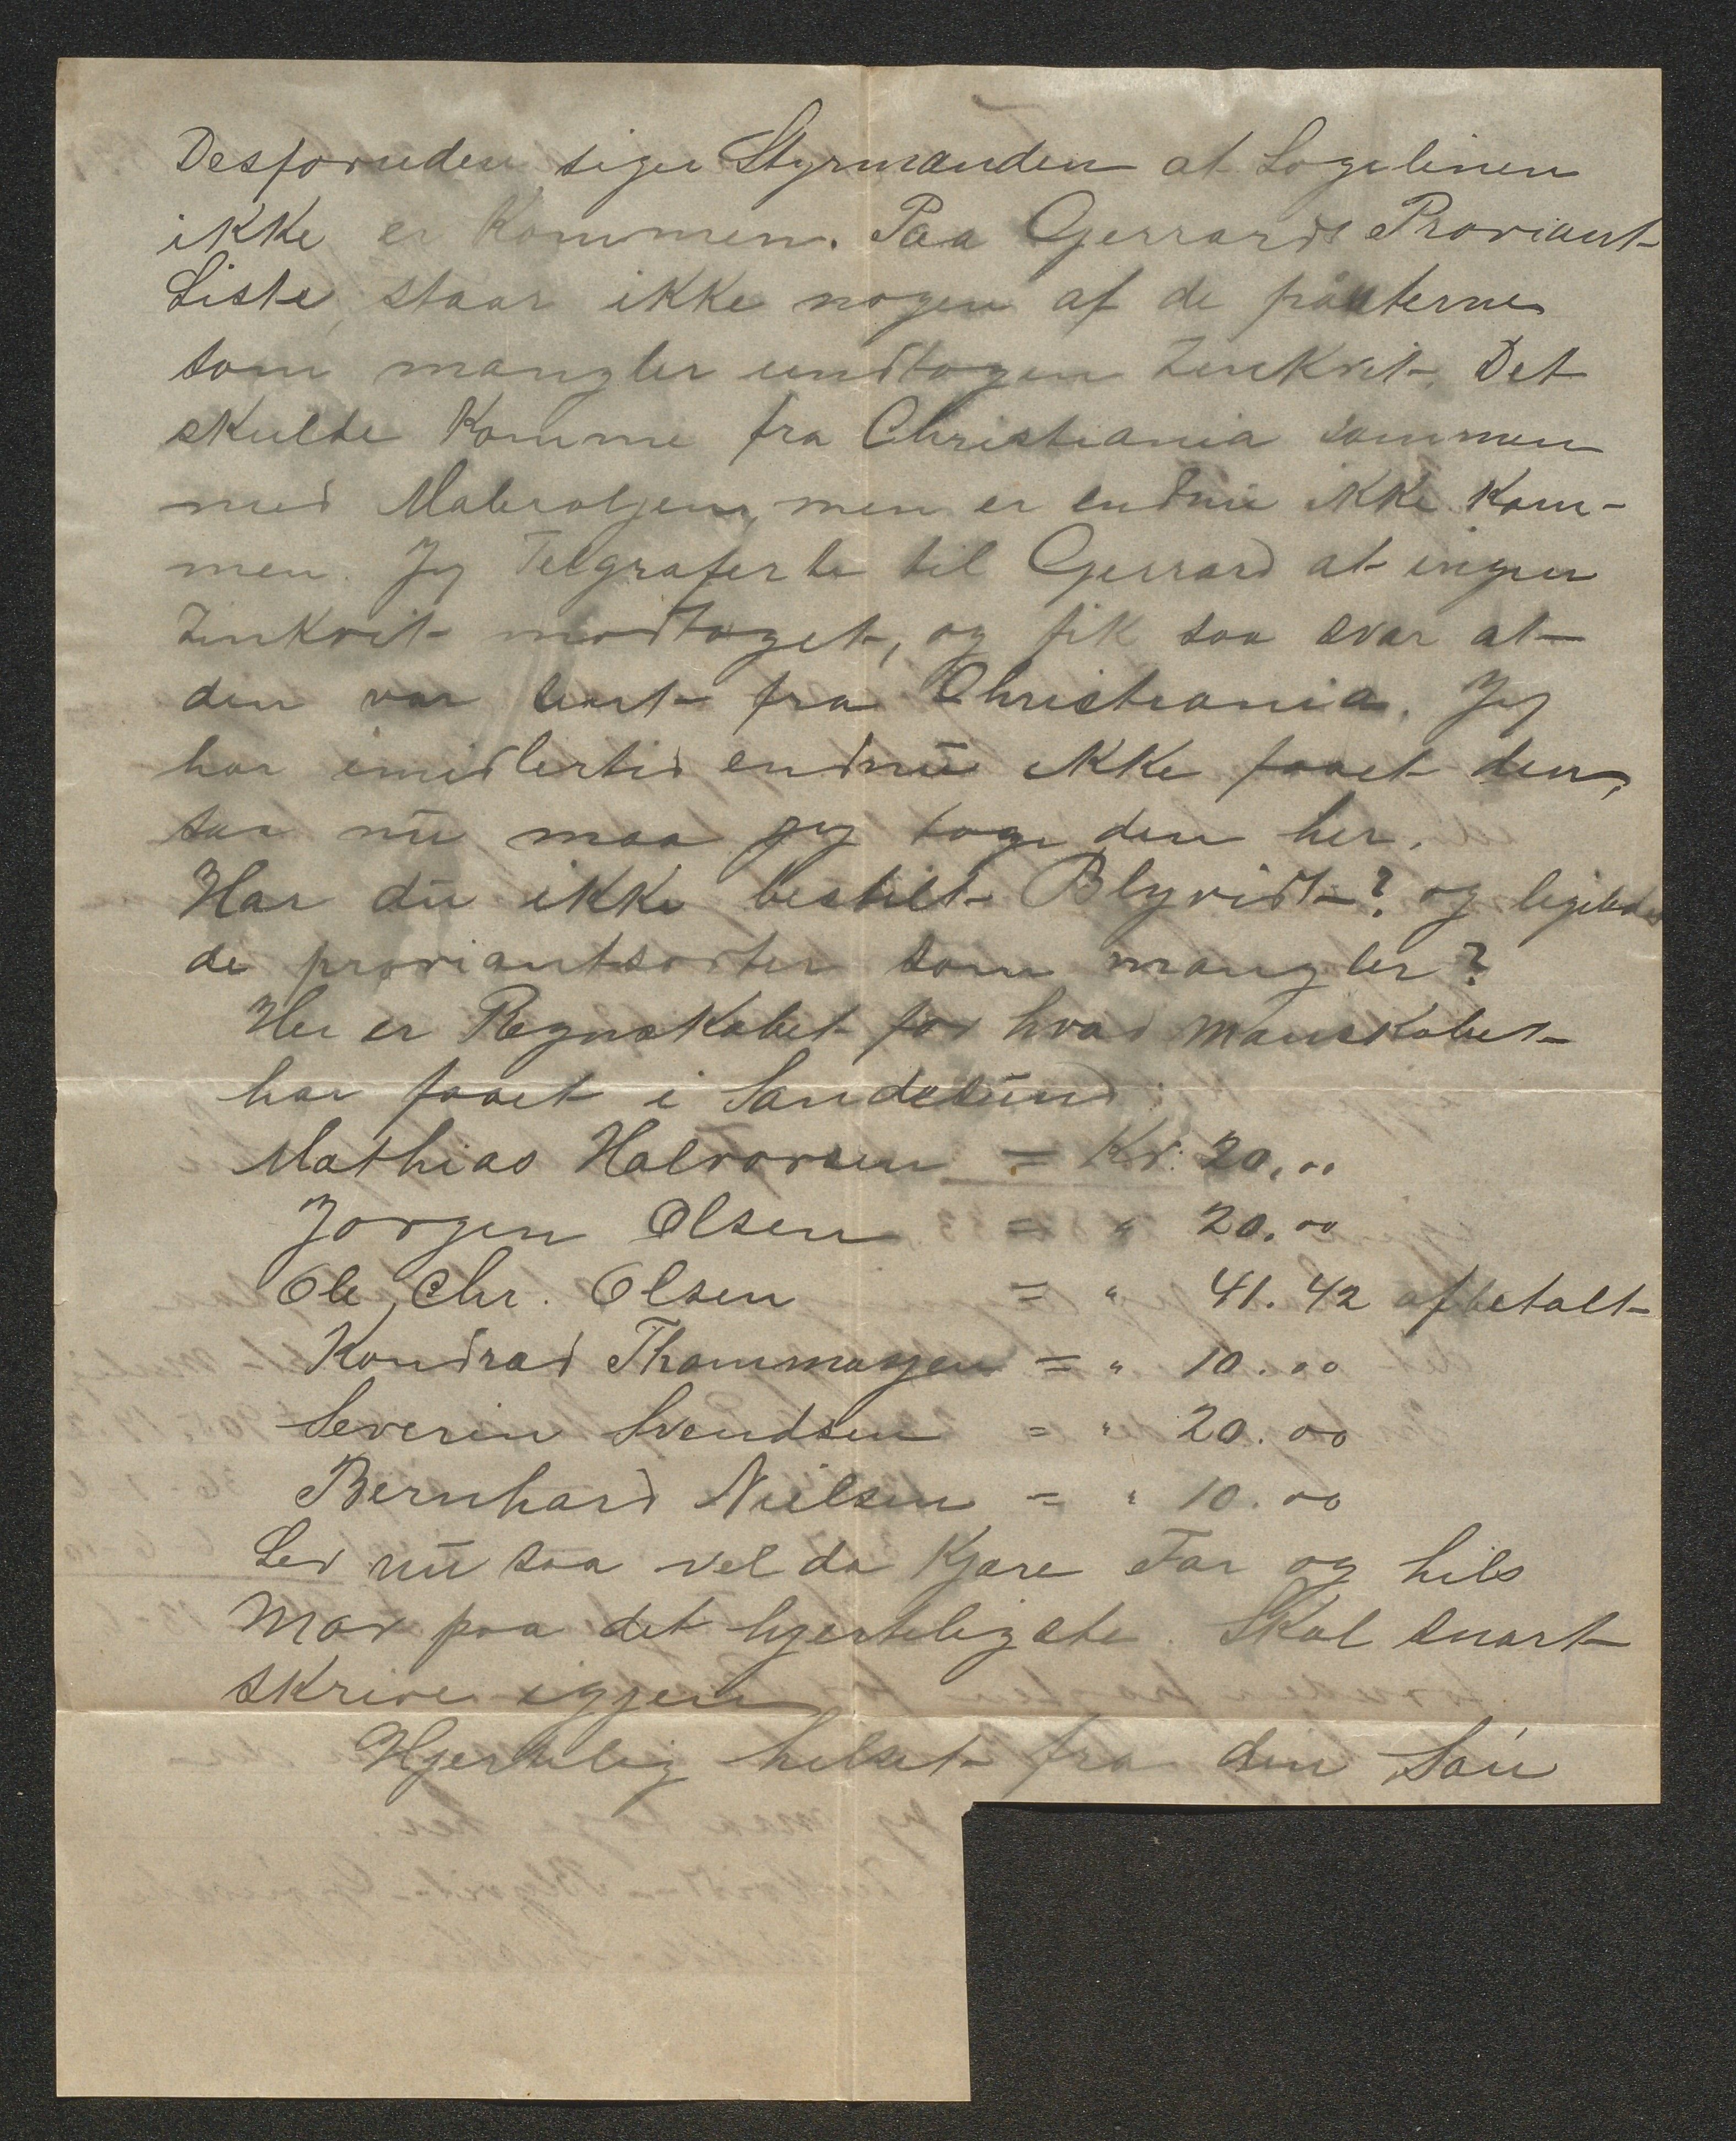 Desforuden siger Styrmanden at Logelinen
ikke er Kommen. Paa Gerrards Proviant-
Liste, staar ikke nogen af de
som mangler undtagen Zinkvit. Det
skulde Komme fra Christiania sammen
med Maleroljen, men er endnu ikke Kom-
men. Jeg Telgraferte til Gerrard at ingen
Zinkvit modtaget, og fik saa svar at
den var sent fra Christiania. Jeg
har imidlertid endnu ikke faaet den,
saa nu maa jeg tage den her.
Har du ikke bestilt Blyvidt? og ligeledes
de proviantsorter som mangler?
Her er Regnskabet for hvad Manskabet
har faaet i Sandesund:
Mathias Halvorsen = Kr. 20,00
Jorgen Olsen = " 20.00
Ole Chr. Olsen = " 41.42 afbetalt
Kondrad Thommasen = " 10.00
Severin Svendsen = " 20.00
Bernhard Nielsen = " 10.00
Lev nu saa vel da Kjære Far og hils
Mor paa det hjerteligste. Skal snart
skrive igjen
Hjertelig hilset fra din Søn